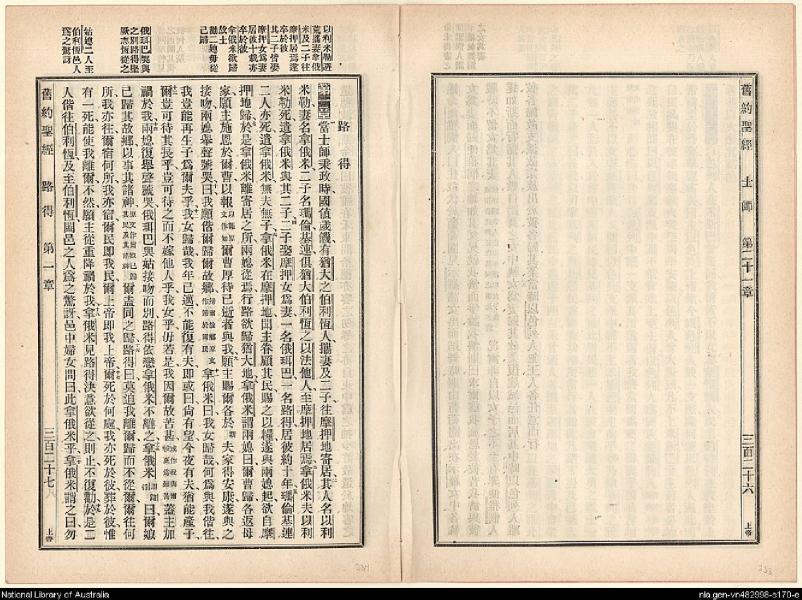 舊約聖經 士師 第二十一章
三百二十六
上帝
以利米勒遭
荒攜妻拿俄
米及二子往
摩押居焉遂
卒於彼
其二子皆娶
摩押女爲妻
居彼十載亦
卒於彼
拿俄米欲歸
故土
勸二媳毋從
己歸
俄珥巴哭與
之別路得堅
欲從之
姑媳二人至
伯利恆邑人
爲之驚訝
路得
當士師秉政時國值歲饑有猶大之伯利恆人攜妻及二子往摩押地寄居其人名以利
米勒妻名拿俄米二子名瑪倫基連俱猶大伯利恆之以法他人至摩押地居焉拿俄米夫以利
米勒死遺拿俄米與其二子二子娶摩押女爲妻一名俄珥巴一名路得居彼約十年瑪倫基連
二人亦死遺拿俄米無夫無子拿俄米在摩押地聞主眷顧其民賜之以糧遂與兩媳起欲自摩
押地歸於是拿俄米離寄居之所兩媳從焉行路欲歸猶大地拿俄米謂兩媳曰爾曹歸各返母
家願主施恩於爾曹以報爾曹厚待已逝者與我願主賜爾各於夫家得安康遂與之
接吻兩媳舉聲號哭曰我願偕爾歸爾故鄉拿俄米曰我女歸哉何爲與我偕往
我豈能再生子爲爾夫乎我女歸哉我年已邁不能復有夫即或曰尚有望今夜有夫猶能產子
爾豈可待其長乎豈可待之而不嫁他人乎我女乎毋若是我因爾故苦甚蓋主加
禍於我兩媳復舉聲號哭俄珥巴與姑接吻而別路得依戀拿俄米不離之拿俄米曰爾娣
已歸其故鄉以事其諸神爾盍同之歸路得曰莫迫我離爾歸而不從爾爾往何
所我亦往爾宿何所我亦宿爾民即我民爾上帝即我上帝爾死於何處我亦死於彼葬於彼惟
有一死能使我離爾不然願主從重降禍於我拿俄米見路得決意欲從之則止不復勸於是二
人偕往伯利恆及至伯利恆闔邑之人爲之驚訝邑中婦女問曰此拿俄米乎拿俄米謂之曰勿
舊約聖經 路得 第一章
三百二十七
上帝
National Library of Australia
nla.gen-vn482998-s170-e